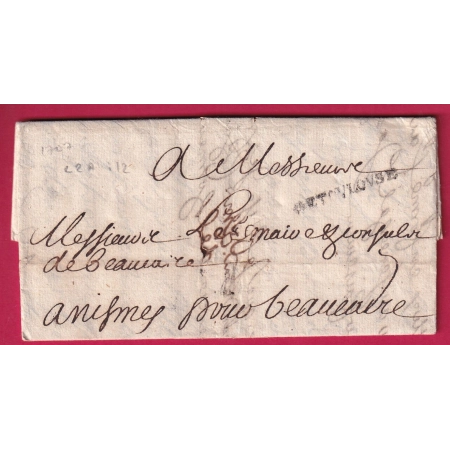 1707
A Messieurs
DETOULOUSE
Messieurs Les maire & consuls
de beaucaire
a nismes pour beaucaire